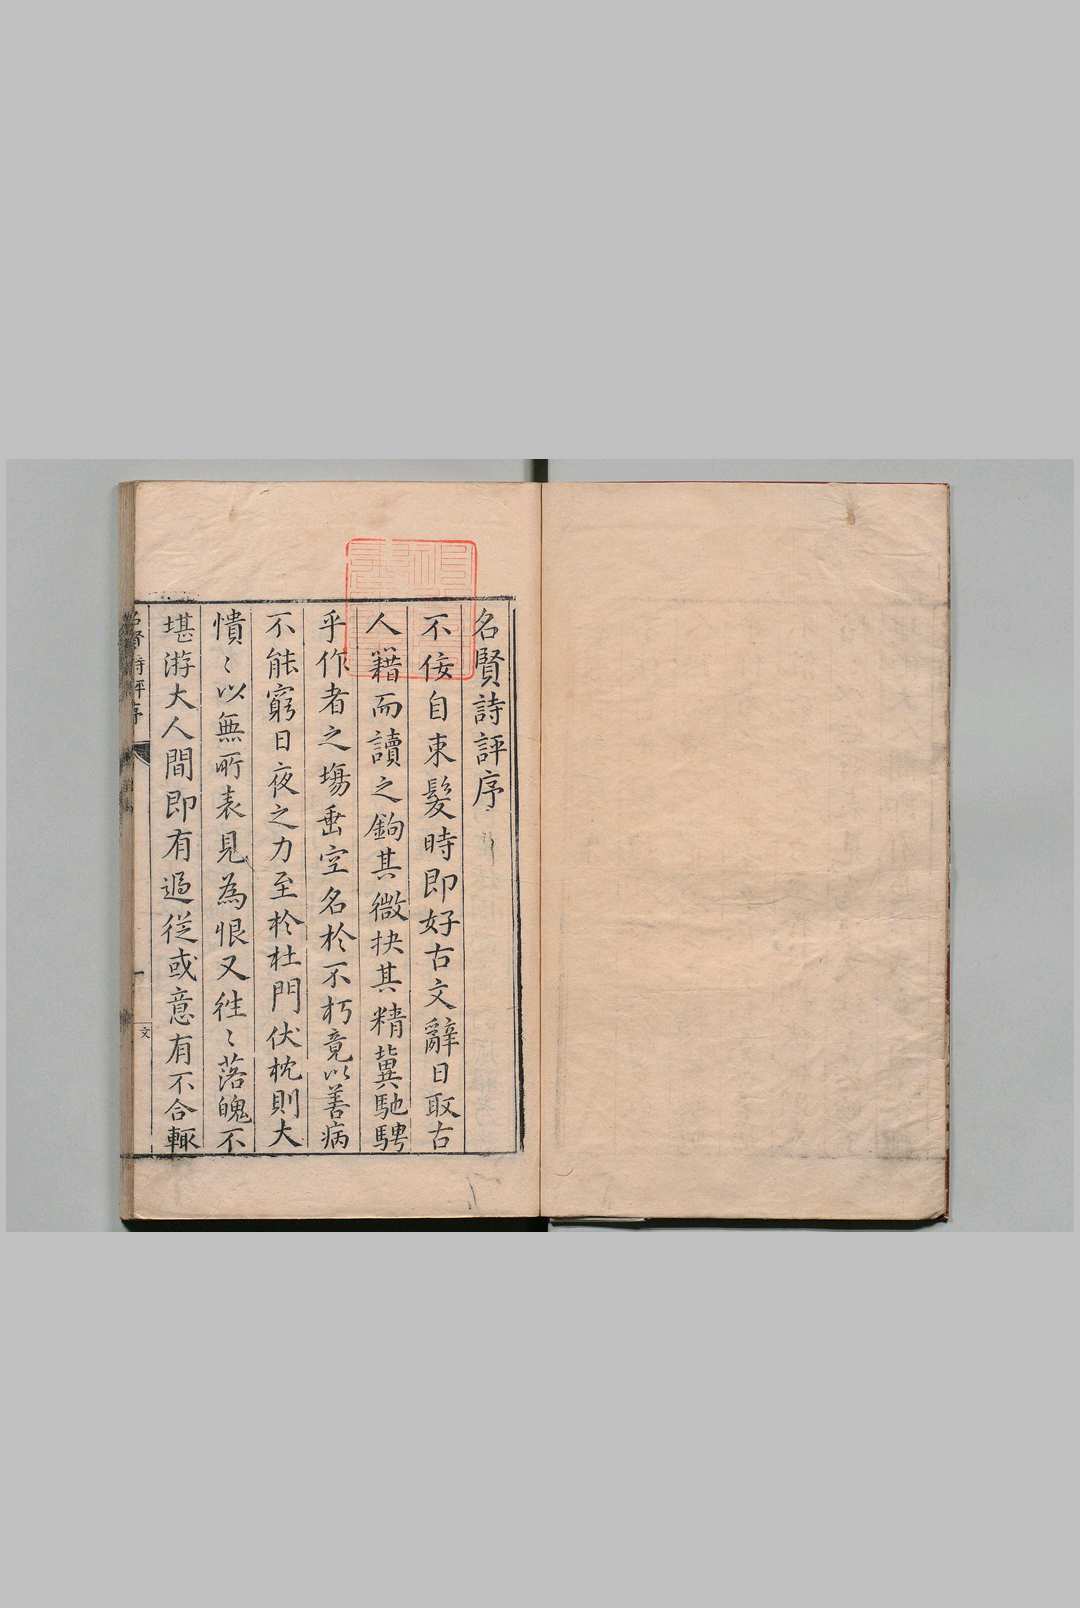 名賢詩評序
不佞自束髮時即好古文辭目取古
人籍而讀之鉤其微抉其精冀馳騁
乎作者之塲垂空名於不朽竟以善病
不能窮日夜之力至於杜門伏枕則大
憒〻以無所表見為恨又徃〻落魄不
堪游大人間即有過從或意有不合輒
名賢詩評序
文